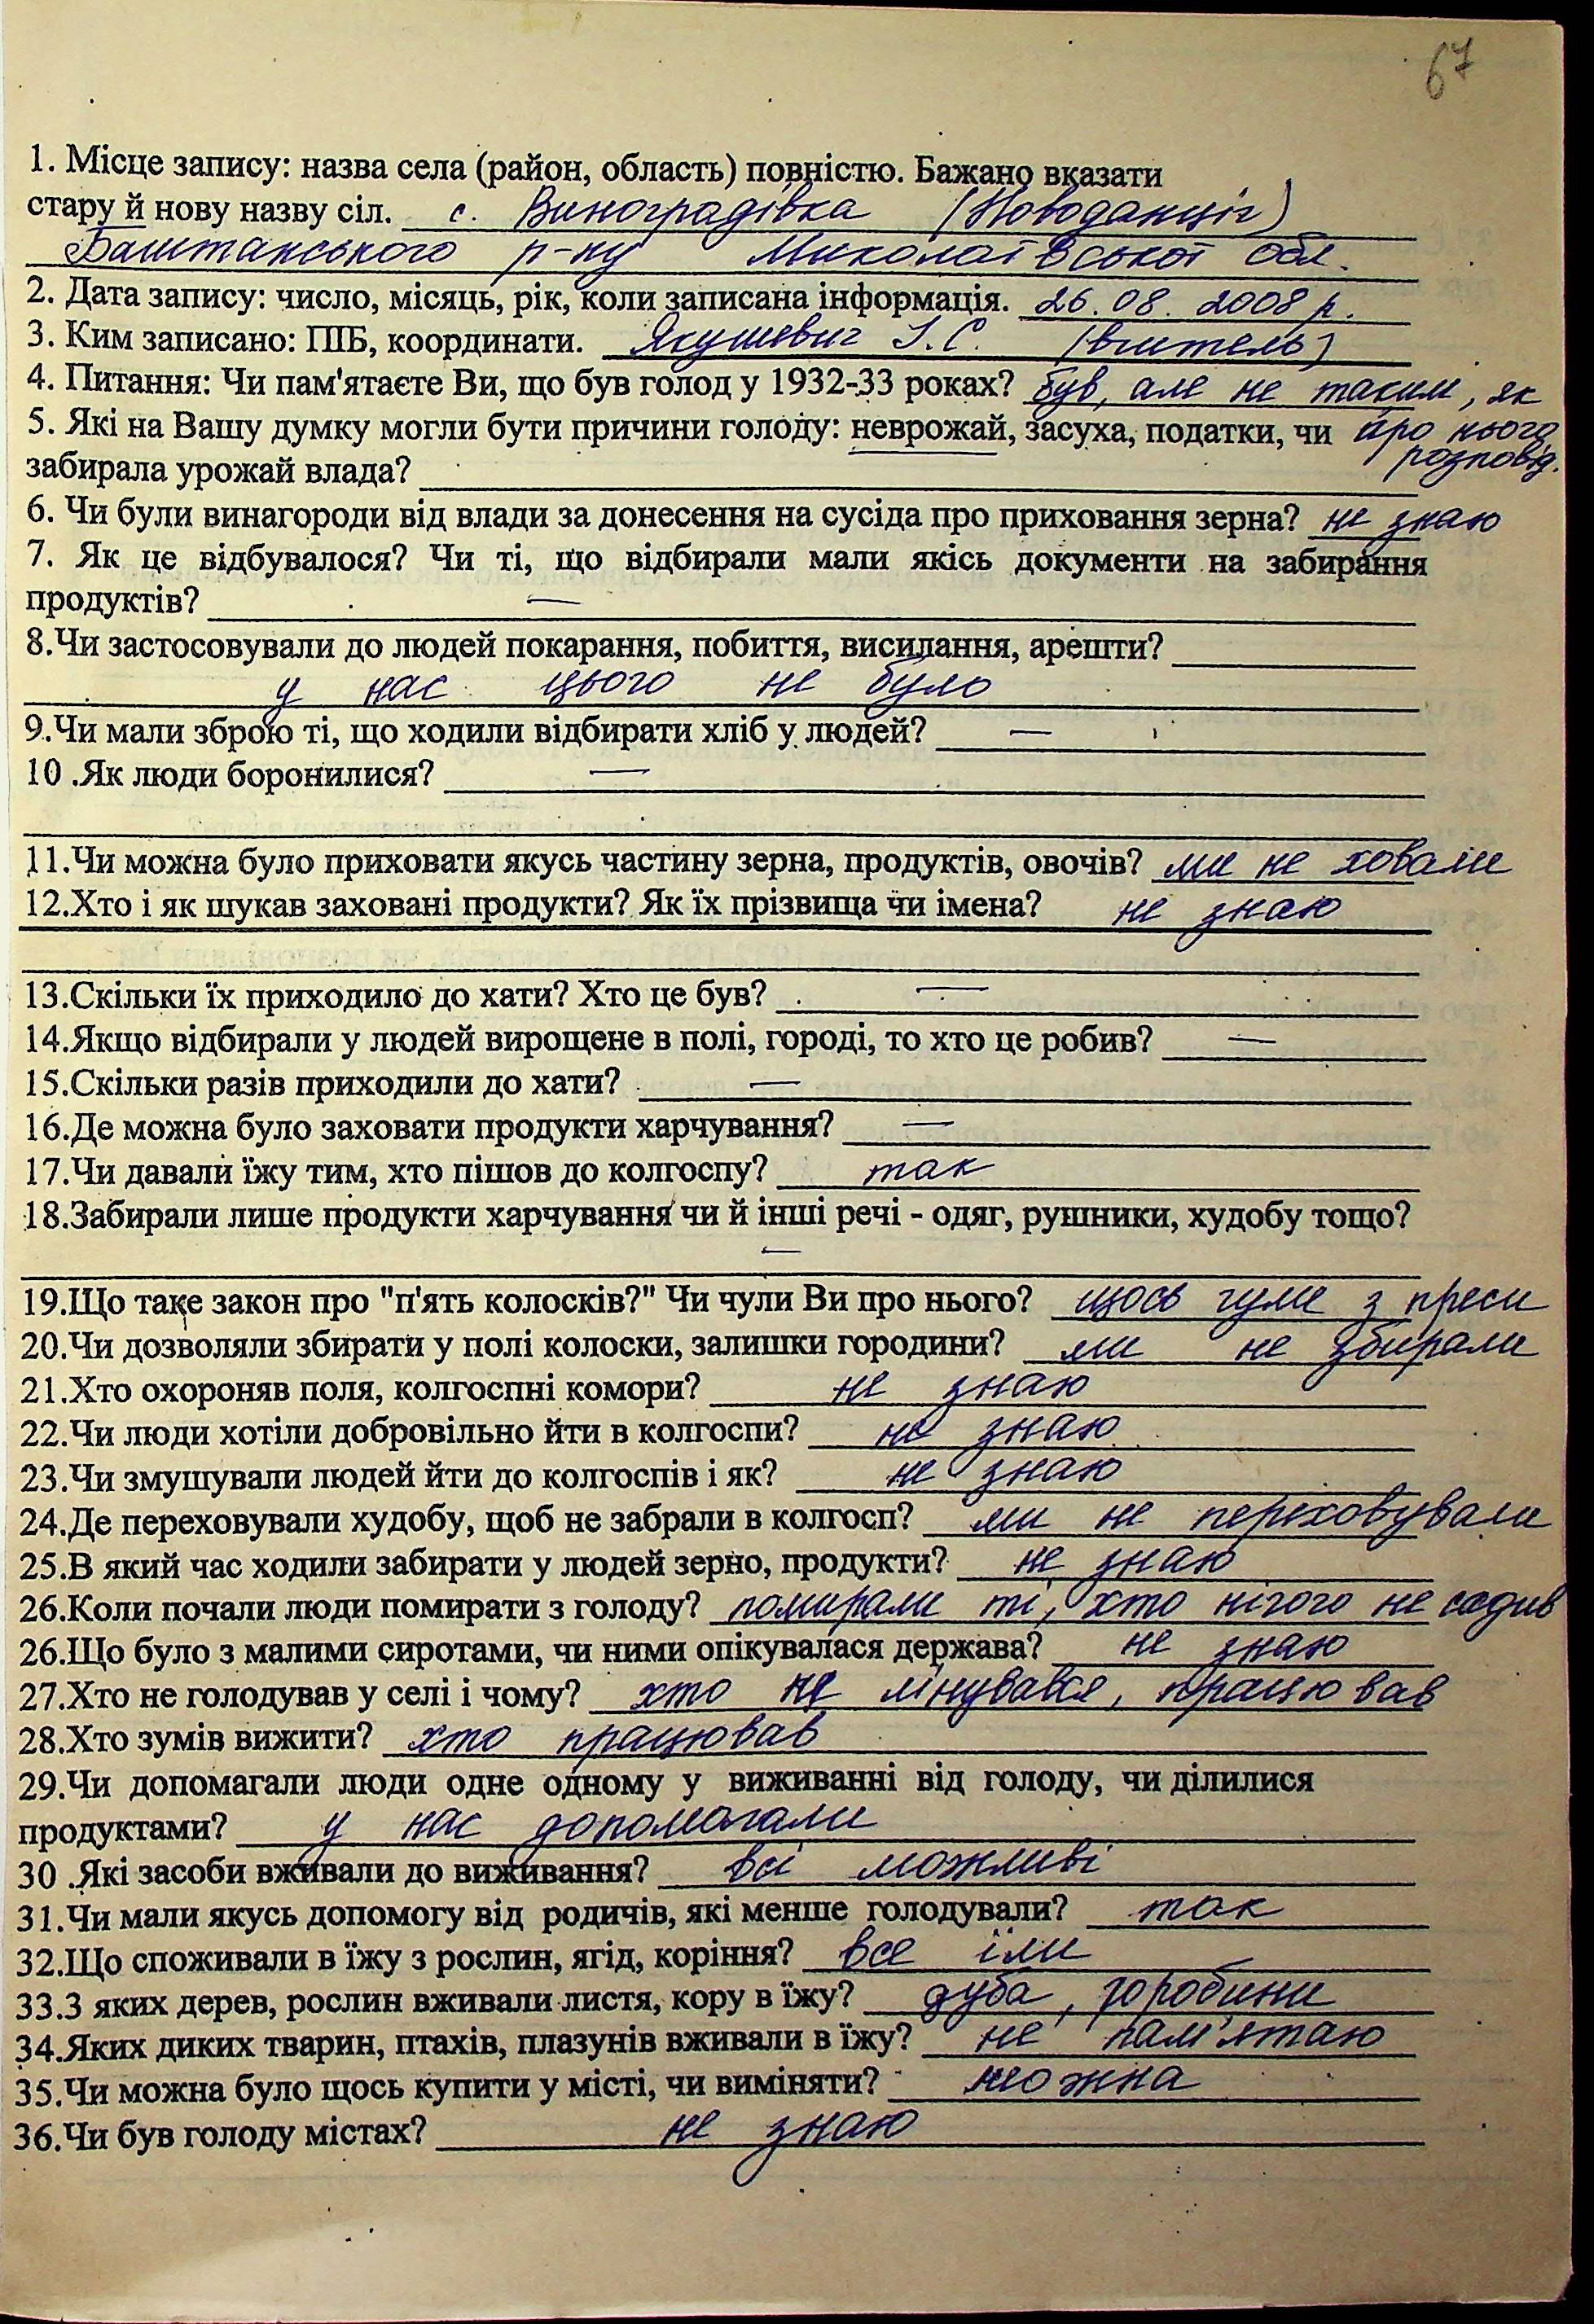 67
1. Місце запису: назва села (район, область) повністю. Бажано вказати
стару й нову назву сіл. с. Виноградівка (Новоданціг)
Баштанського р-ну Миколаївської обл.
2. Дата запису: число, місяць, рік, коли записана інформація. 26.08.2008 р.
3. Ким записано: ПІБ, координати. Якушевич І.С. (вчитель)
4. Питання: Чи пам'ятаєте Ви, що був голод у 1932-33 роках? був, але не таким, як
5. Які на Вашу думку могли бути причини голоду: неврожай, засуха, податки, чи про нього
забирала урожай влада? розповід.
6. Чи були винагороди від влади за донесення на сусіда про приховання зерна? не знаю
7. Як це відбувалося? Чи ті, що відбирали мали якісь документи на забирання
продуктів? —
8.Чи застосовували до людей покарання, побиття, висилання, арешти?
у нас цього не було
9.Чи мали зброю ті, що ходили відбирати хліб у людей? —
10 .Як люди боронилися? —
11.Чи можна було приховати якусь частину зерна, продуктів, овочів? ми не ховали
12.Хто і як шукав заховані продукти? Як їх прізвища чи імена? не знаю
13.Скільки їх приходило до хати? Хто це був? —
14.Якщо відбирали у людей вирощене в полі, городі, то хто це робив? —
15.Скільки разів приходили до хати? —
16.Де можна було заховати продукти харчування? —
17.Чи давали їжу тим, хто пішов до колгоспу? так
18.Забирали лише продукти харчування чи й інші речі - одяг, рушники, худобу тощо?
—
19.Що таке закон про "п'ять колосків?" Чи чули Ви про нього? щось чули з преси
20.Чи дозволяли збирати у полі колоски, залишки городини? ми не збирали
21.Хто охороняв поля, колгоспні комори? не знаю
22.Чи люди хотіли добровільно йти в колгоспи? не знаю
23.Чи змушували людей йти до колгоспів і як? не знаю
24.Де переховували худобу, щоб не забрали в колгосп? ми не переховували
25.В який час ходили забирати у людей зерно, продукти? не знаю
26.Коли почали люди помирати з голоду? помирали ті, хто нічого не садив
26.Що було з малими сиротами, чи ними опікувалася держава? не знаю
27.Хто не голодував у селі і чому? хто не лінувався, працював
28.Хто зумів вижити? хто працював
29.Чи допомагали люди одне одному у виживанні від голоду, чи ділилися
продуктами? у нас допомагали
30 .Які засоби вживали до виживання? всі можливі
31.Чи мали якусь допомогу від родичів, які менше голодували? так
32.Що споживали в їжу з рослин, ягід, коріння? все їли
33.З яких дерев, рослин вживали листя, кору в їжу? дуба, горобини
34.Яких диких тварин, птахів, плазунів вживали в їжу? не пам'ятаю
35.Чи можна було щось купити у місті, чи виміняти? можна
36.Чи був голоду містах? не знаю